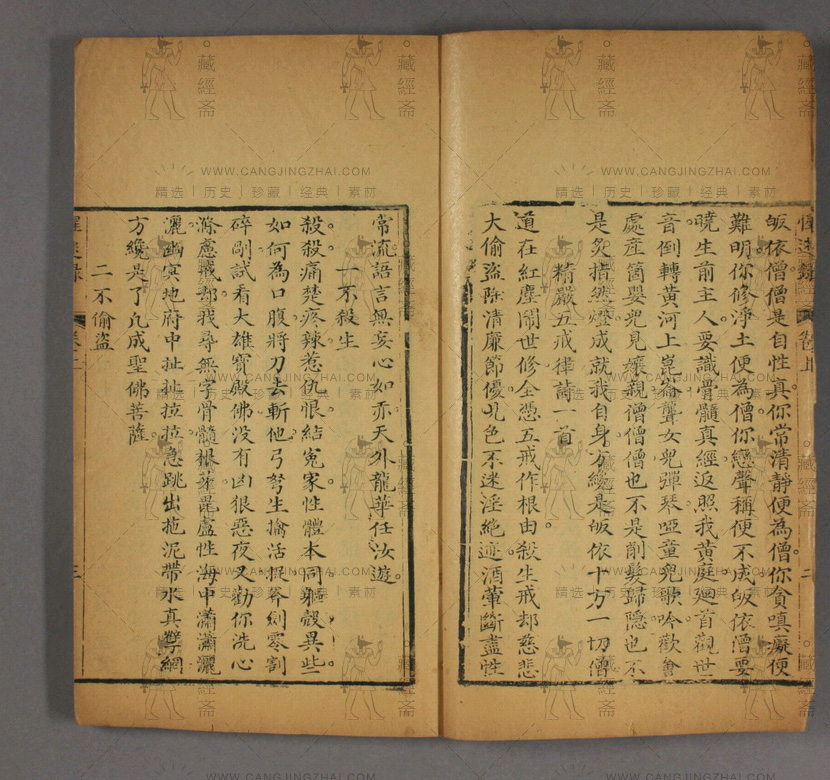 皈依僧僧是自性真你常清靜便為僧你貪嗔癡便
難明你修淨土便為僧你戀聲稱便不成皈依僧要
曉生前主人要識骨髓真經返照我黃庭廻首觀世
音倒轉黃河上崑崙聾女兒彈琴啞童兒歌吟歡會
處産箇嬰兒見孃親僧僧僧也不是削髮歸隱也不
是炙揞燃燈成就我自身方纔是皈依十方一切僧
精嚴五戒律詩一首
道在紅塵鬧世修全憑五戒作根由殺生戒却慈悲
大偷盜除清廉節優凡色不迷淫絶迹酒葷斷盡性
常流語言無妄心如亦天外龍華任汝遊
一不殺生
殺殺痛楚疼辣惹仇恨結寃家性體本同軀殼異些
如何為口腹將刀去斬他弓弩生擒活捉斧剁零割
碎剮試看大雄寶殿佛没有凶狠惡夜叉勸你洗心
滌慮
却我尋無字骨髓
毘盧性海中瀟瀟灑
灑幽冥地府中扯扯拉拉急跳出拖泥帶水真孽網
方纔是了凢成聖佛菩薩
二不偷盜
三
二
卷上
藏經斋
WWW.CANGJINGZHAI.COM
精选｜历史｜珍藏｜经典｜素材